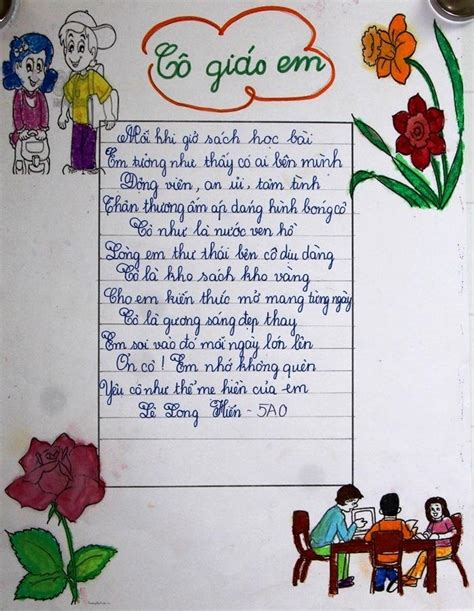 Cô giáo em
Mỗi khi giở sách học bài
Em tưởng như thấy có ai bên mình
Động viên, an ủi, tâm tình
Thân thương ấm áp dáng hình bóng cô
Cô như là nước ven hồ
Lòng em thư thái bên cô dịu dàng
Cô là kho sách kho vàng
Cho em kiến thức mở mang từng ngày
Cô là gương sáng đẹp thay
Em soi vào đó mỗi ngày lớn lên
Ơn cô ! Em nhớ không quên
Yêu cô như thể mẹ hiền của em
Lê Long Hiến - 5A0